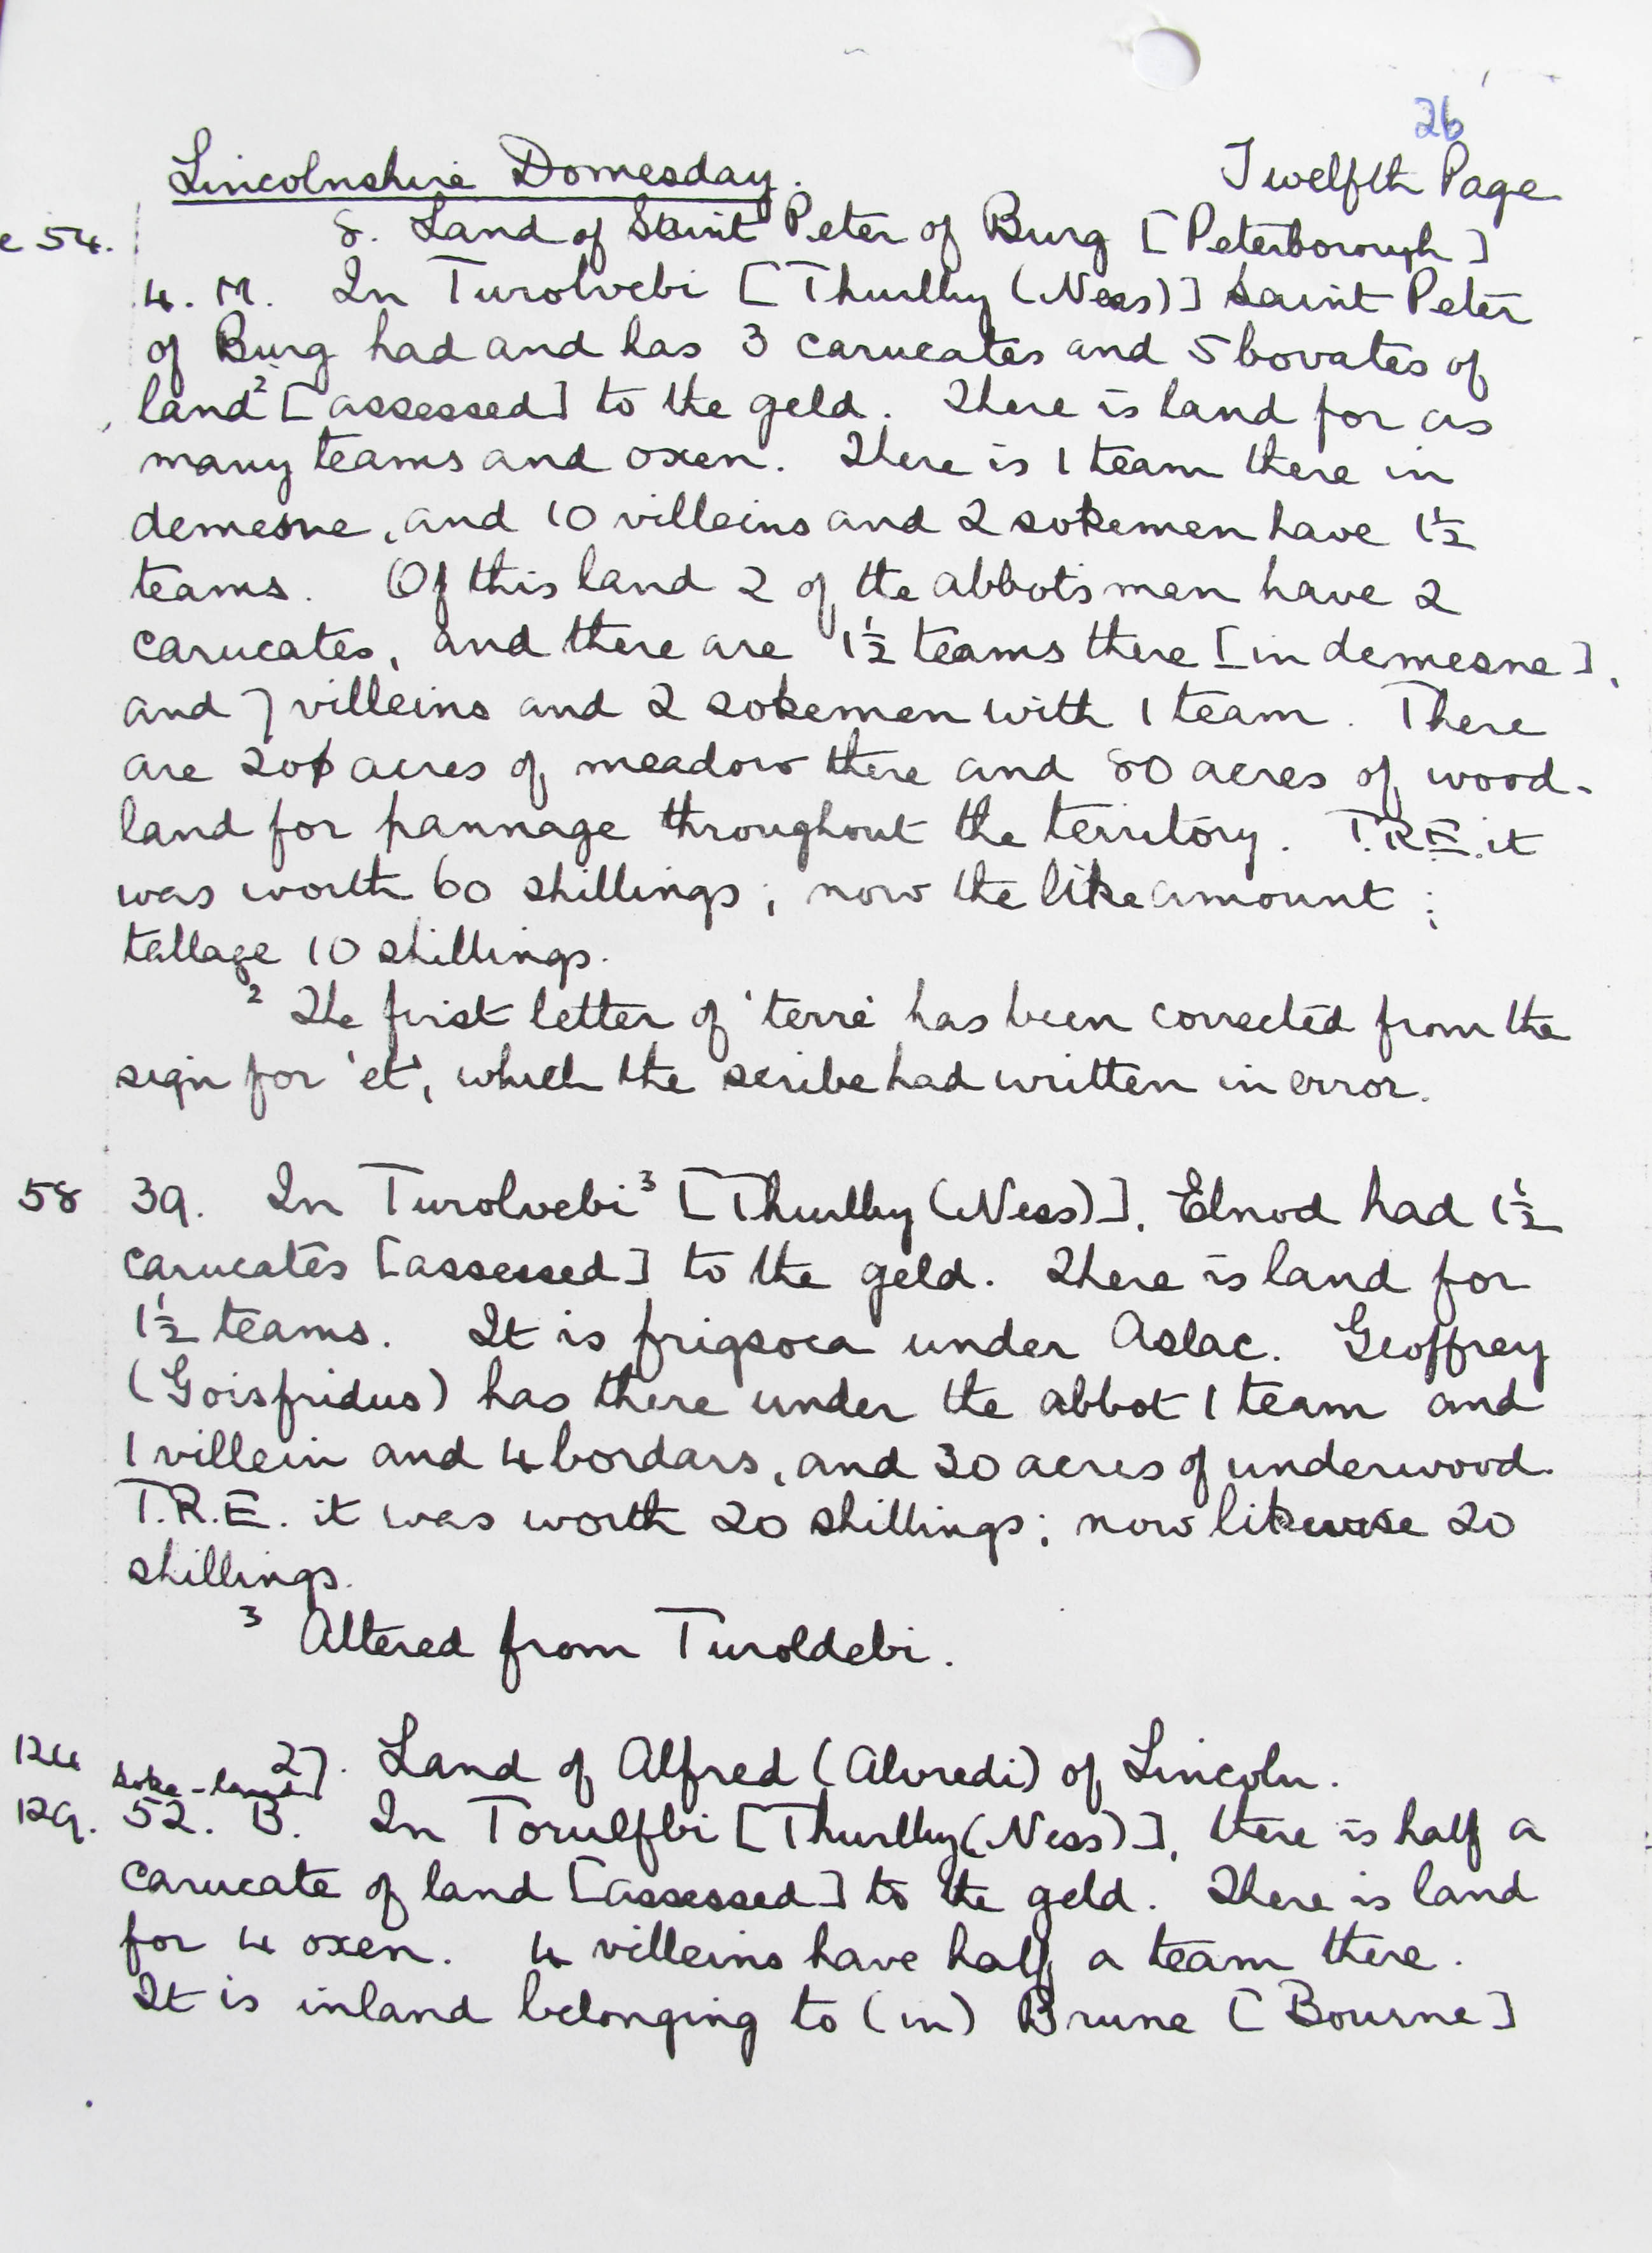 26
Lincolnshire Domesday. Twelfth Page
e 54. 8. Land of Saint Peter of Burg [Peterborough]
4. M. In Turolvebi [Thurlby (Ness)] Saint Peter
of Burg had and has 3 carucates and 5 bovates of
land² [assessed] to the geld. There is land for as
many teams and oxen. There is 1 team there in
demesne, and 10 villeins and 2 sokemen have 1½
teams. Of this land 2 of the abbot's men have 2
carucates, and there are 1½ teams there [in demesne],
and 7 villeins and 2 sokemen with 1 team. There
are 20 acres of meadow there and 80 acres of wood-
land for pannage throughout the territory. T.R.E. it
was worth 60 shillings; now the like amount;
tallage 10 shillings.
² The first letter of 'terre' has been corrected from the
sign for 'et', which the scribe had written in error.
58 39. In Turolvebi³ [Thurlby (Ness)], Elnod had 1½
carucates [assessed] to the geld. There is land for
1½ teams. It is frigsoca under Aslac. Geoffrey
(Goisfridus) has there under the abbot 1 team and
1 villein and 4 bordars, and 30 acres of underwood.
T.R.E. it was worth 20 shillings; now likewise 20
shillings.
³ Altered from Turoldebi.
124 27. Land of Alfred (Alvredi) of Lincoln.
soke-land]
129. 52. B. In Torulfbi [Thurlby (Ness)], there is half a
carucate of land [assessed] to the geld. There is land
for 4 oxen. 4 villeins have half a team there.
It is inland belonging to (in) Brune [Bourne]